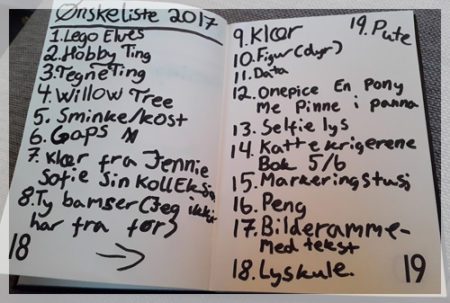 Ønskeliste 2017
1. Lego Elves
2. Hobby Ting
3. Tegne Ting
4. Willow Tree
5. Sminke/kost
6. Gaps M
7. Klær fra Jennie
Sofie sin kolleksj
8. Ty bamser (Jeg ikke
har fra før)
18
9. Klær
10. Figur (dyr)
11. Data
12. Onepice En Pony
Me Pinne i panna
13. Selfie lys
14. Kattekrigerene
Bok 5/6
15. Markeringstusj
16. Peng
17. Bilderamme-
Med tekst
18. Lyskule.
19. Pute
19